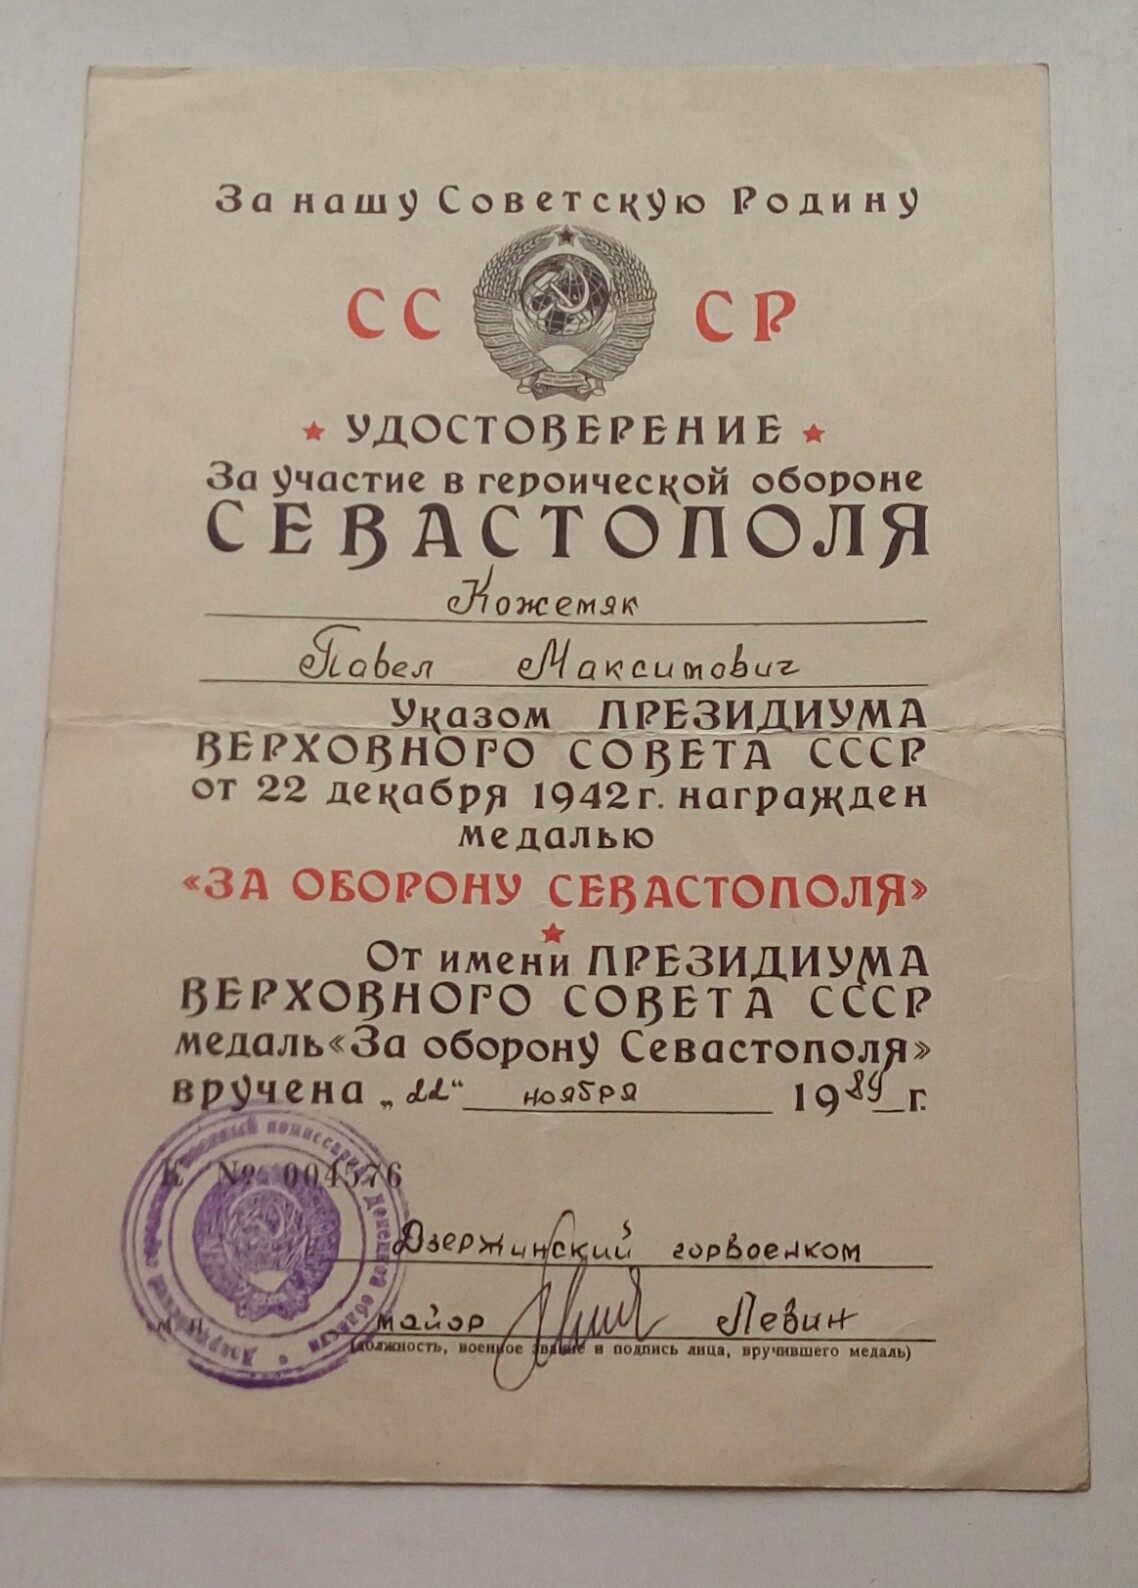 За нашу Советскую Родину
СС СР
УДОСТОВЕРЕНИЕ
За участие в героической обороне
СЕВАСТОПОЛЯ
Кожемяк
Павел Максимович
Указом ПРЕЗИДИУМА
ВЕРХОВНОГО СОВЕТА СССР
от 22 декабря 1942 г. награжден
медалью
«ЗА ОБОРОНУ СЕВАСТОПОЛЯ»
От имени ПРЕЗИДИУМА
ВЕРХОВНОГО СОВЕТА СССР
медаль «За оборону Севастополя»
вручена „22“ ноября 1989 г.
К № 004576
Дзержинский горвоенком
майор Левин
(должность, военное звание и подпись лица, вручившего медаль)
военный комиссариат Донецкой области